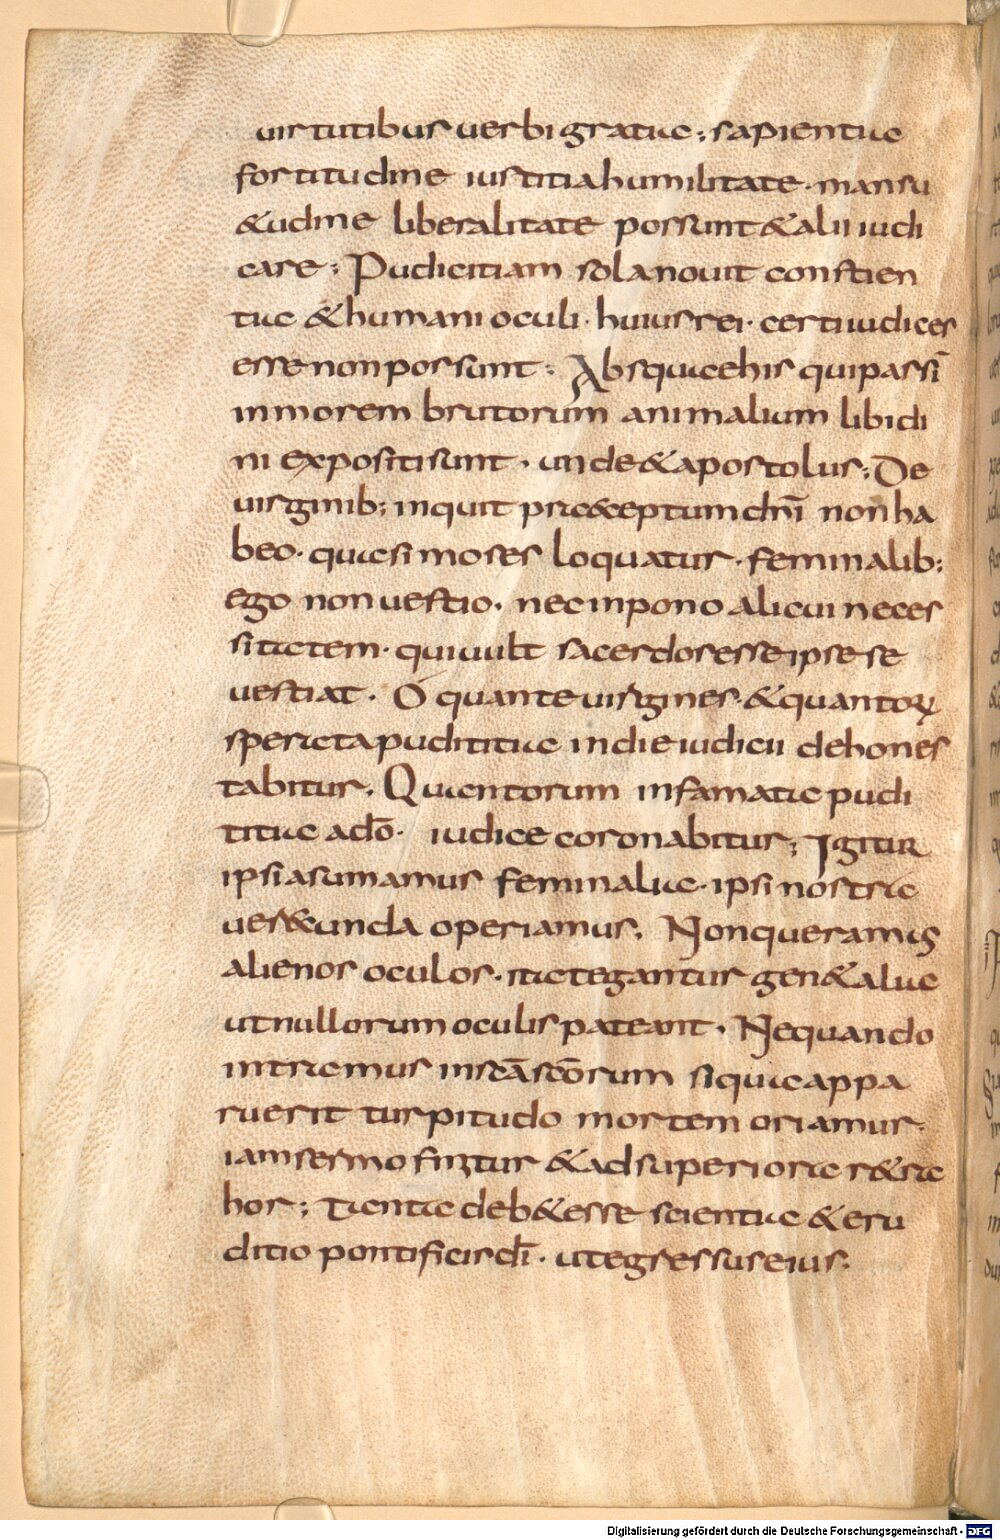 uirtutibus uerbi gratia; sapientiae
fortitudine iustitia humilitate· mansu
&udine liberalitate possunt & alii iudi
care; Pudicitiam sola nouit conscien
tia & humani oculi· huius rei· certi iudices
esse non possunt; Absque his qui passī
in morem brutorum animalium libidi
ni expositi sunt· unde & apostolus; De
uirginib; inquit praeceptum dn̄i non ha
beo· quasi moses loquatur· feminalib;
ego non uestio· nec inpono alicui neces
sitatem· qui uult sacerdos esse ipse se
uestiat· O quante uirgines· & quantorꝝ
sperata pudititia in die iudicii dehones
tabitur· Quantorum infamata pudi
titia a dō· iudice coronabitur; Igitur
ipsi asumamus feminalia· ipsi nostra
uer&cunda operiamus· Non queramus
alienos oculos· ita tegantur genitalia
ut nullorum oculis pateant· Nequando
intramus in sc̄a sc̄orum si qua appa
ruerit turpitudo morte moriamur·
iam sermo finitur & ad superiora r&ra
hor; Tanta deb& esse scientia & eru
ditio pontificis dī· ut egressus eius·
Digitalisierung gefördert durch die Deutsche Forschungsgemeinschaft - DFG